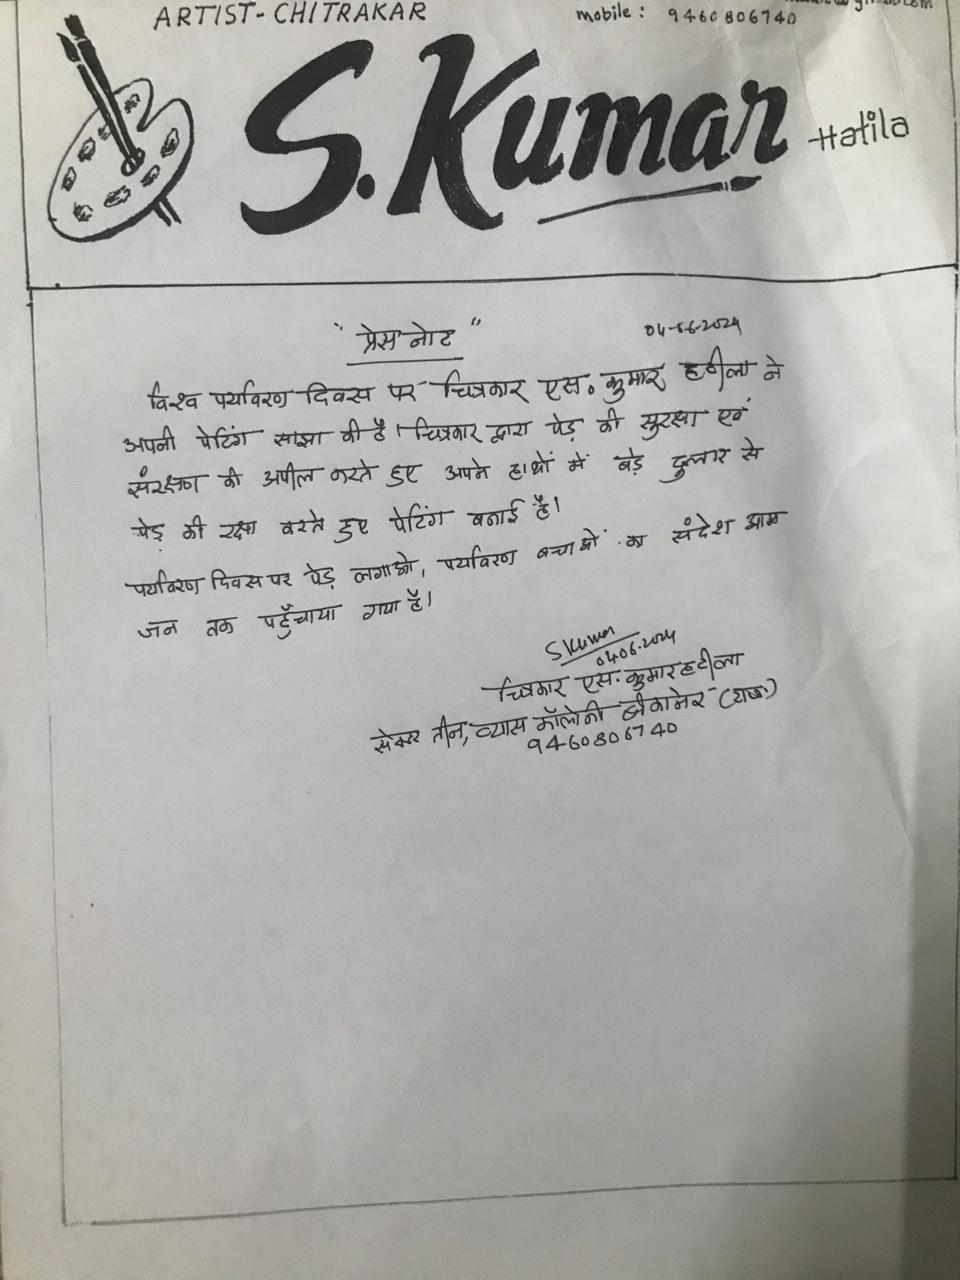 ARTIST-CHITRAKAR
mobile: 9460806740
S.Kumar
Hatila
"प्रेस नोट"
04-06-2024
विश्व पर्यावरण दिवस पर चित्रकार एस. कुमार हटीला ने
अपनी पेटिंग साझा की है। चित्रकार द्वारा पेड़ की सुरक्षा एवं
संरक्षण की अपील करते हुए अपने हाथों में बड़े दुलार से
पेड़ की रक्षा करते हुए पेटिंग बनाई है।
पर्यावरण दिवस पर पेड़ लगाओ, पर्यावरण बचाओ का संदेश आम
जन तक पहुँचाया गया है।
S Kumar
04.06.2024
चित्रकार एस. कुमार हटीला
सेक्टर तीन, व्यास कॉलोनी बीकानेर (राज.)
9460806740